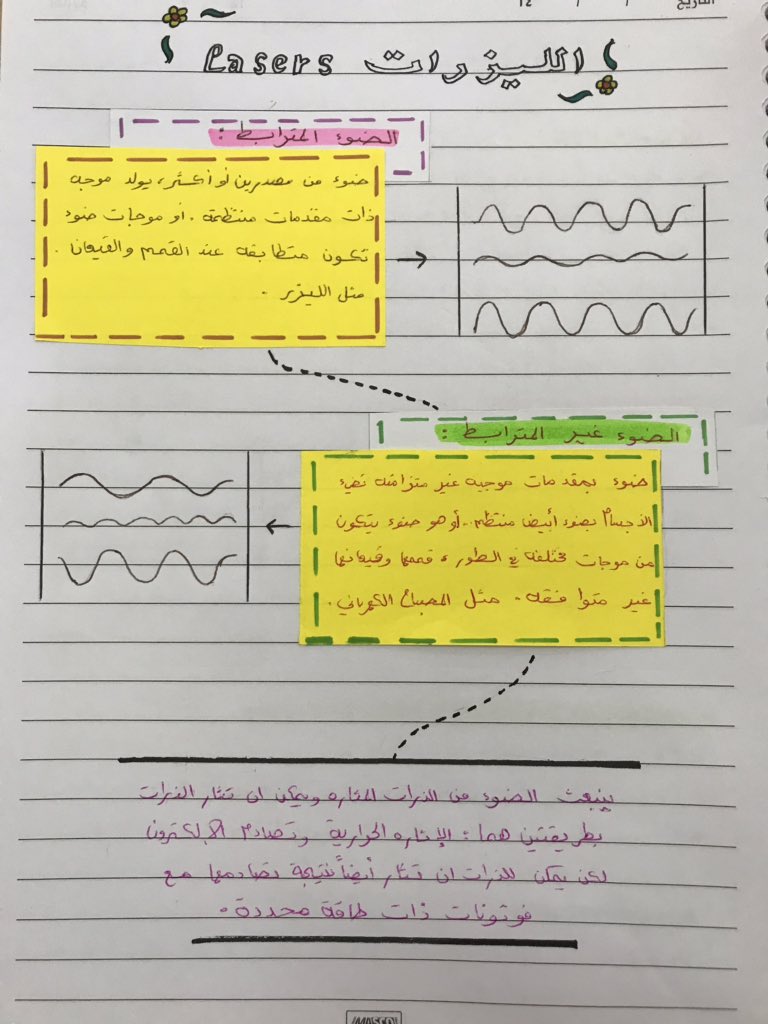 التاريخ / / 14
الليزرات Lasers
الضوء المترابط :
ضوء من مصدرين أو أكثر، يولد موجه
ذات مقدمات منتظمة. أو موجات ضوء
تكون متطابقه عند القمم والقيعان.
مثل الليزر.
الضوء غير المترابط :
ضوء بمقدمات موجيه غير متزامنه تضيء
الأجسام بضوء أبيض منتظم. أو هو ضوء يتكون
من موجات مختلفه في الطور، قممها وقيعانها
غير متوافقه. مثل المصباح الكهربائي.
ينبعث الضوء من الذرات المثاره ويمكن ان تثار الذرات
بطريقتين هما: الإثاره الحرارية وتصادم الإلكترون
لكن يمكن للذرات ان تثار أيضاً نتيجة تصادمها مع
فوتونات ذات طاقة محددة.
MASCO